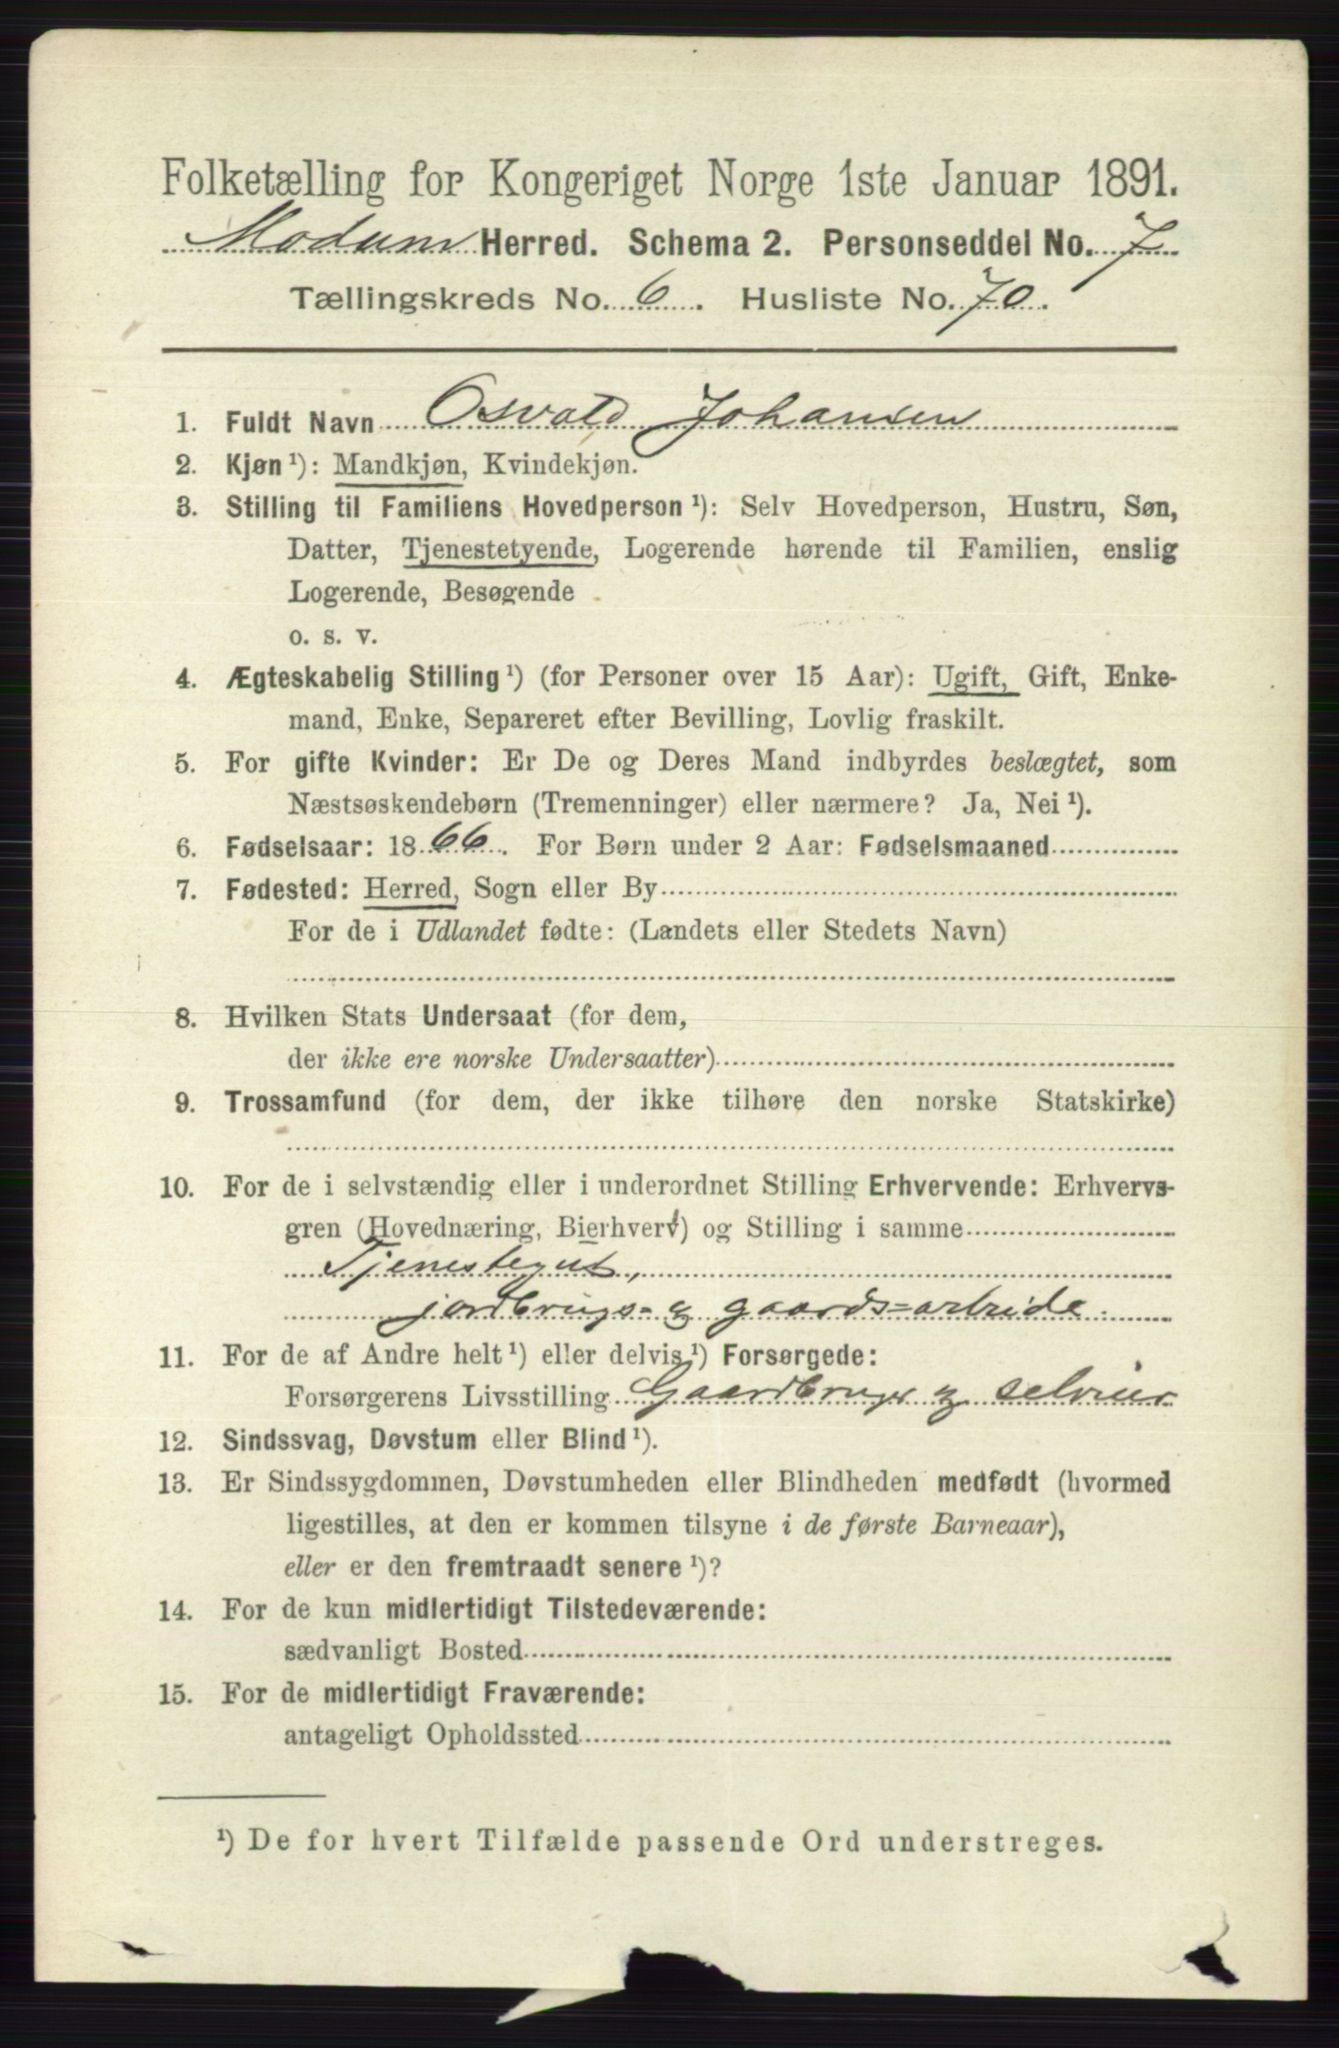 Folketælling for Kongeriget Norge 1ste Januar 1891.
Modum Herred. Schema 2. Personseddel No. 7
Tællingskreds No. 6. Husliste No. 70.
1. Fuldt Navn Osvald Johansen
2. Kjøn ¹): Mandkjøn, Kvindekjøn.
3. Stilling til Familiens Hovedperson ¹): Selv Hovedperson, Hustru, Søn,
Datter, Tjenestetyende, Logerende hørende til Familien, enslig
Logerende, Besøgende
o. s. v.
4. Ægteskabelig Stilling ¹) (for Personer over 15 Aar): Ugift, Gift, Enke-
mand, Enke, Separeret efter Bevilling, Lovlig fraskilt.
5. For gifte Kvinder: Er De og Deres Mand indbyrdes beslægtet, som
Næstsøskendebørn (Tremenninger) eller nærmere? Ja, Nei ¹).
6. Fødselsaar: 1866. For Børn under 2 Aar: Fødselsmaaned
7. Fødested: Herred, Sogn eller By
For de i Udlandet fødte: (Landets eller Stedets Navn)
8. Hvilken Stats Undersaat (for dem,
der ikke ere norske Undersaatter)
9. Trossamfund (for dem, der ikke tilhøre den norske Statskirke)
10. For de i selvstændig eller i underordnet Stilling Erhvervende: Erhvervs-
gren (Hovednæring, Bierhverv) og Stilling i samme
Tjenestegut,
jordbrugs- og gaards=arbeide.
11. For de af Andre helt ¹) eller delvis ¹) Forsørgede:
Forsørgerens Livsstilling Gaardbruger og selveier
12. Sindssvag, Døvstum eller Blind ¹).
13. Er Sindssygdommen, Døvstumheden eller Blindheden medfødt (hvormed
ligestilles, at den er kommen tilsyne i de første Barneaar),
eller er den fremtraadt senere ¹)?
14. For de kun midlertidigt Tilstedeværende:
sædvanligt Bosted
15. For de midlertidigt Fraværende:
antageligt Opholdssted
¹) De for hvert Tilfælde passende Ord understreges.